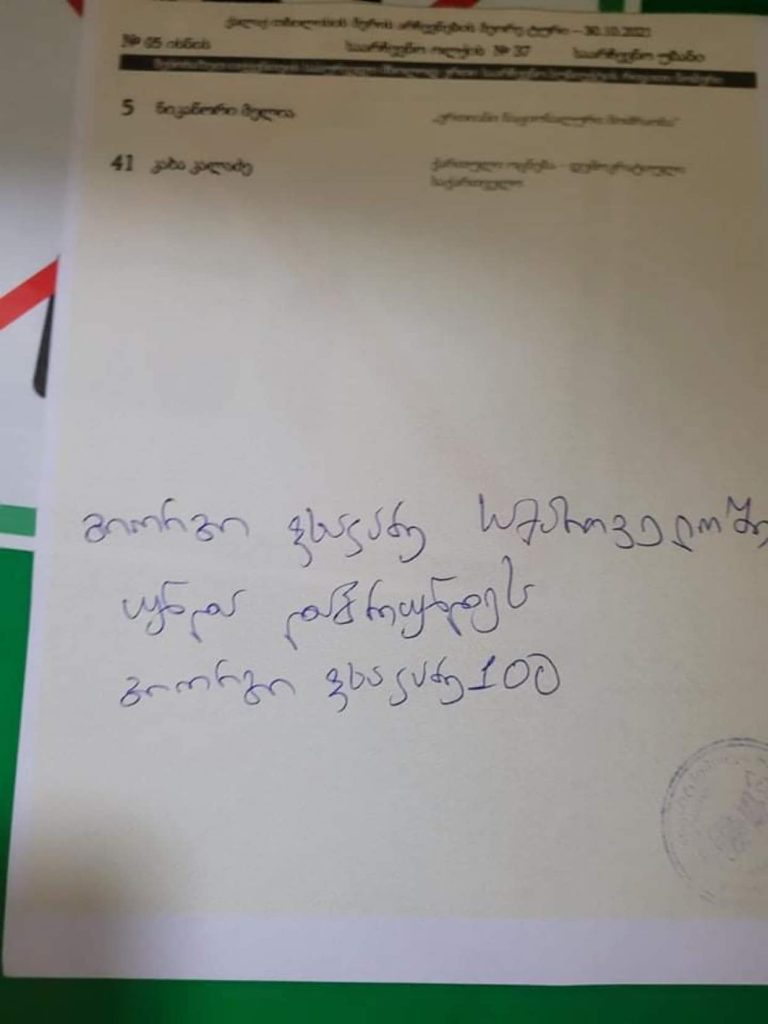 ქალაქ თბილისის მერის არჩევნების მეორე ტური – 30.10.2021
№ 05 ისნის საარჩევნო ოლქის № 37 საარჩევნო უბანი
5 ნიკანორი მელია „ერთიანი ნაციონალური მოძრაობა“
41 კახა კალაძე ქართული ოცნება - დემოკრატიული
საქართველო
გიორგი საქართველოში
უნდა დაბრუნდეს
გიორგი 100